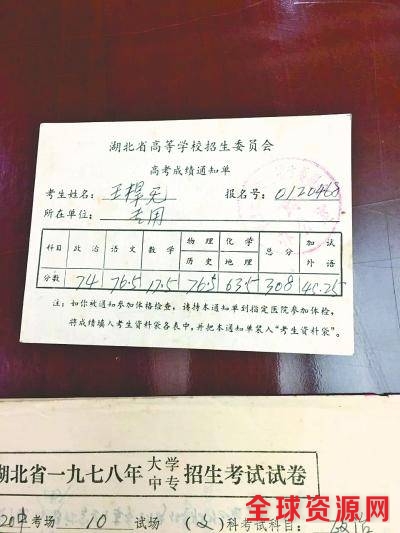 湖北省高等学校招生委员会
高考成绩通知单
考生姓名：王桿无 报名号：0120468
所在单位：老用
科目 政治 语文 数学 物理 历史 化学 地理 总分 加试 外语
分数 74 76.5 17.5 76.5 63.5 308 48.25
注：如你被通知参加体格检查，请持本通知单到指定医院参加体检，
将成绩填入考生资料袋各表中，并把本通知单装入“考生资料袋”。
湖北省一九七八年大学中专招生考试试卷
考场 10 试场 （文）科考试科目：政治
全球资源网